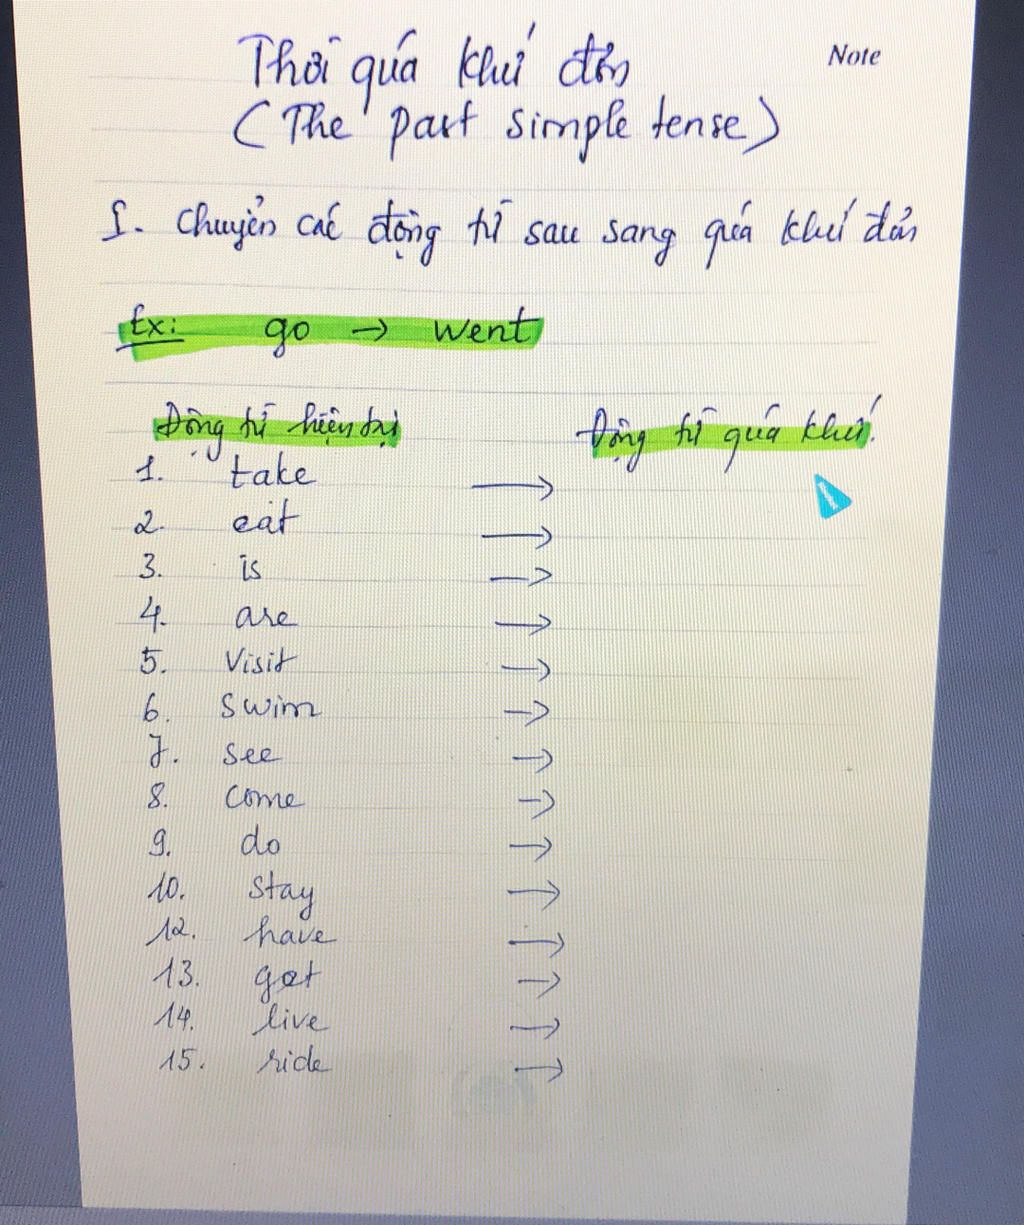 Note
Thời quá khứ đơn
(The past simple tense)
I. Chuyển các động từ sau sang quá khứ đơn
Ex: go → went
Động từ hiện tại Động từ quá khứ.
1. take →
2. eat →
3. is →
4. are →
5. Visit →
6. swim →
7. see →
8. come →
9. do →
10. stay →
12. have →
13. get →
14. live →
15. ride →